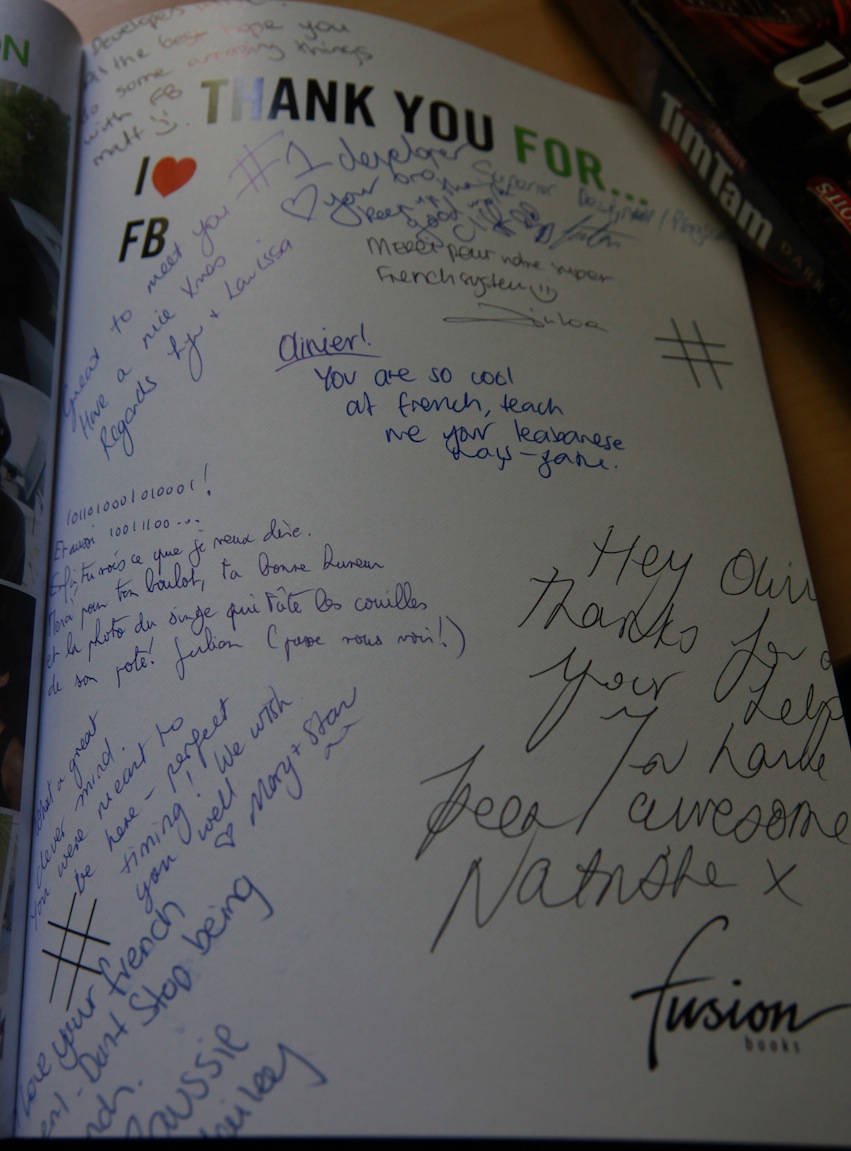 ON
Developers
all the best hope you
do some amazing things
with FB
matt :)
THANK YOU FOR...
I ❤
FB
#1 developer
♡ your
keep up
good
Superior
Great to meet you
Have a nice Xmas
Regards + Larissa
Merci pour notre super
French system :)
#
Olivier!
You are so cool
at french, teach
me your leabanese
1011010001010001!
Et aussi 10011100...
Enfin tu vois ce que je veux dire.
Merci pour ton boulot, ta bonne humeur
et la photo du singe qui tâte les couilles
de son pote! Julian (passe nous voir!)
Hey
Thanks for
your help
You have
been awesome
Natashe x
What a great
clever mind.
You were meant to
be here - perfect
timing! We wish
you well
♡ Mary + Stan
#
Love your french
- Dont Stop being
Aussie
fusion
books
TimTam
DARK